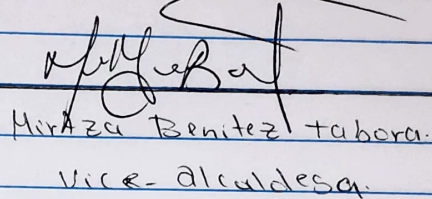 MirAza Benitez tabora.
Vice- alcaldesa.